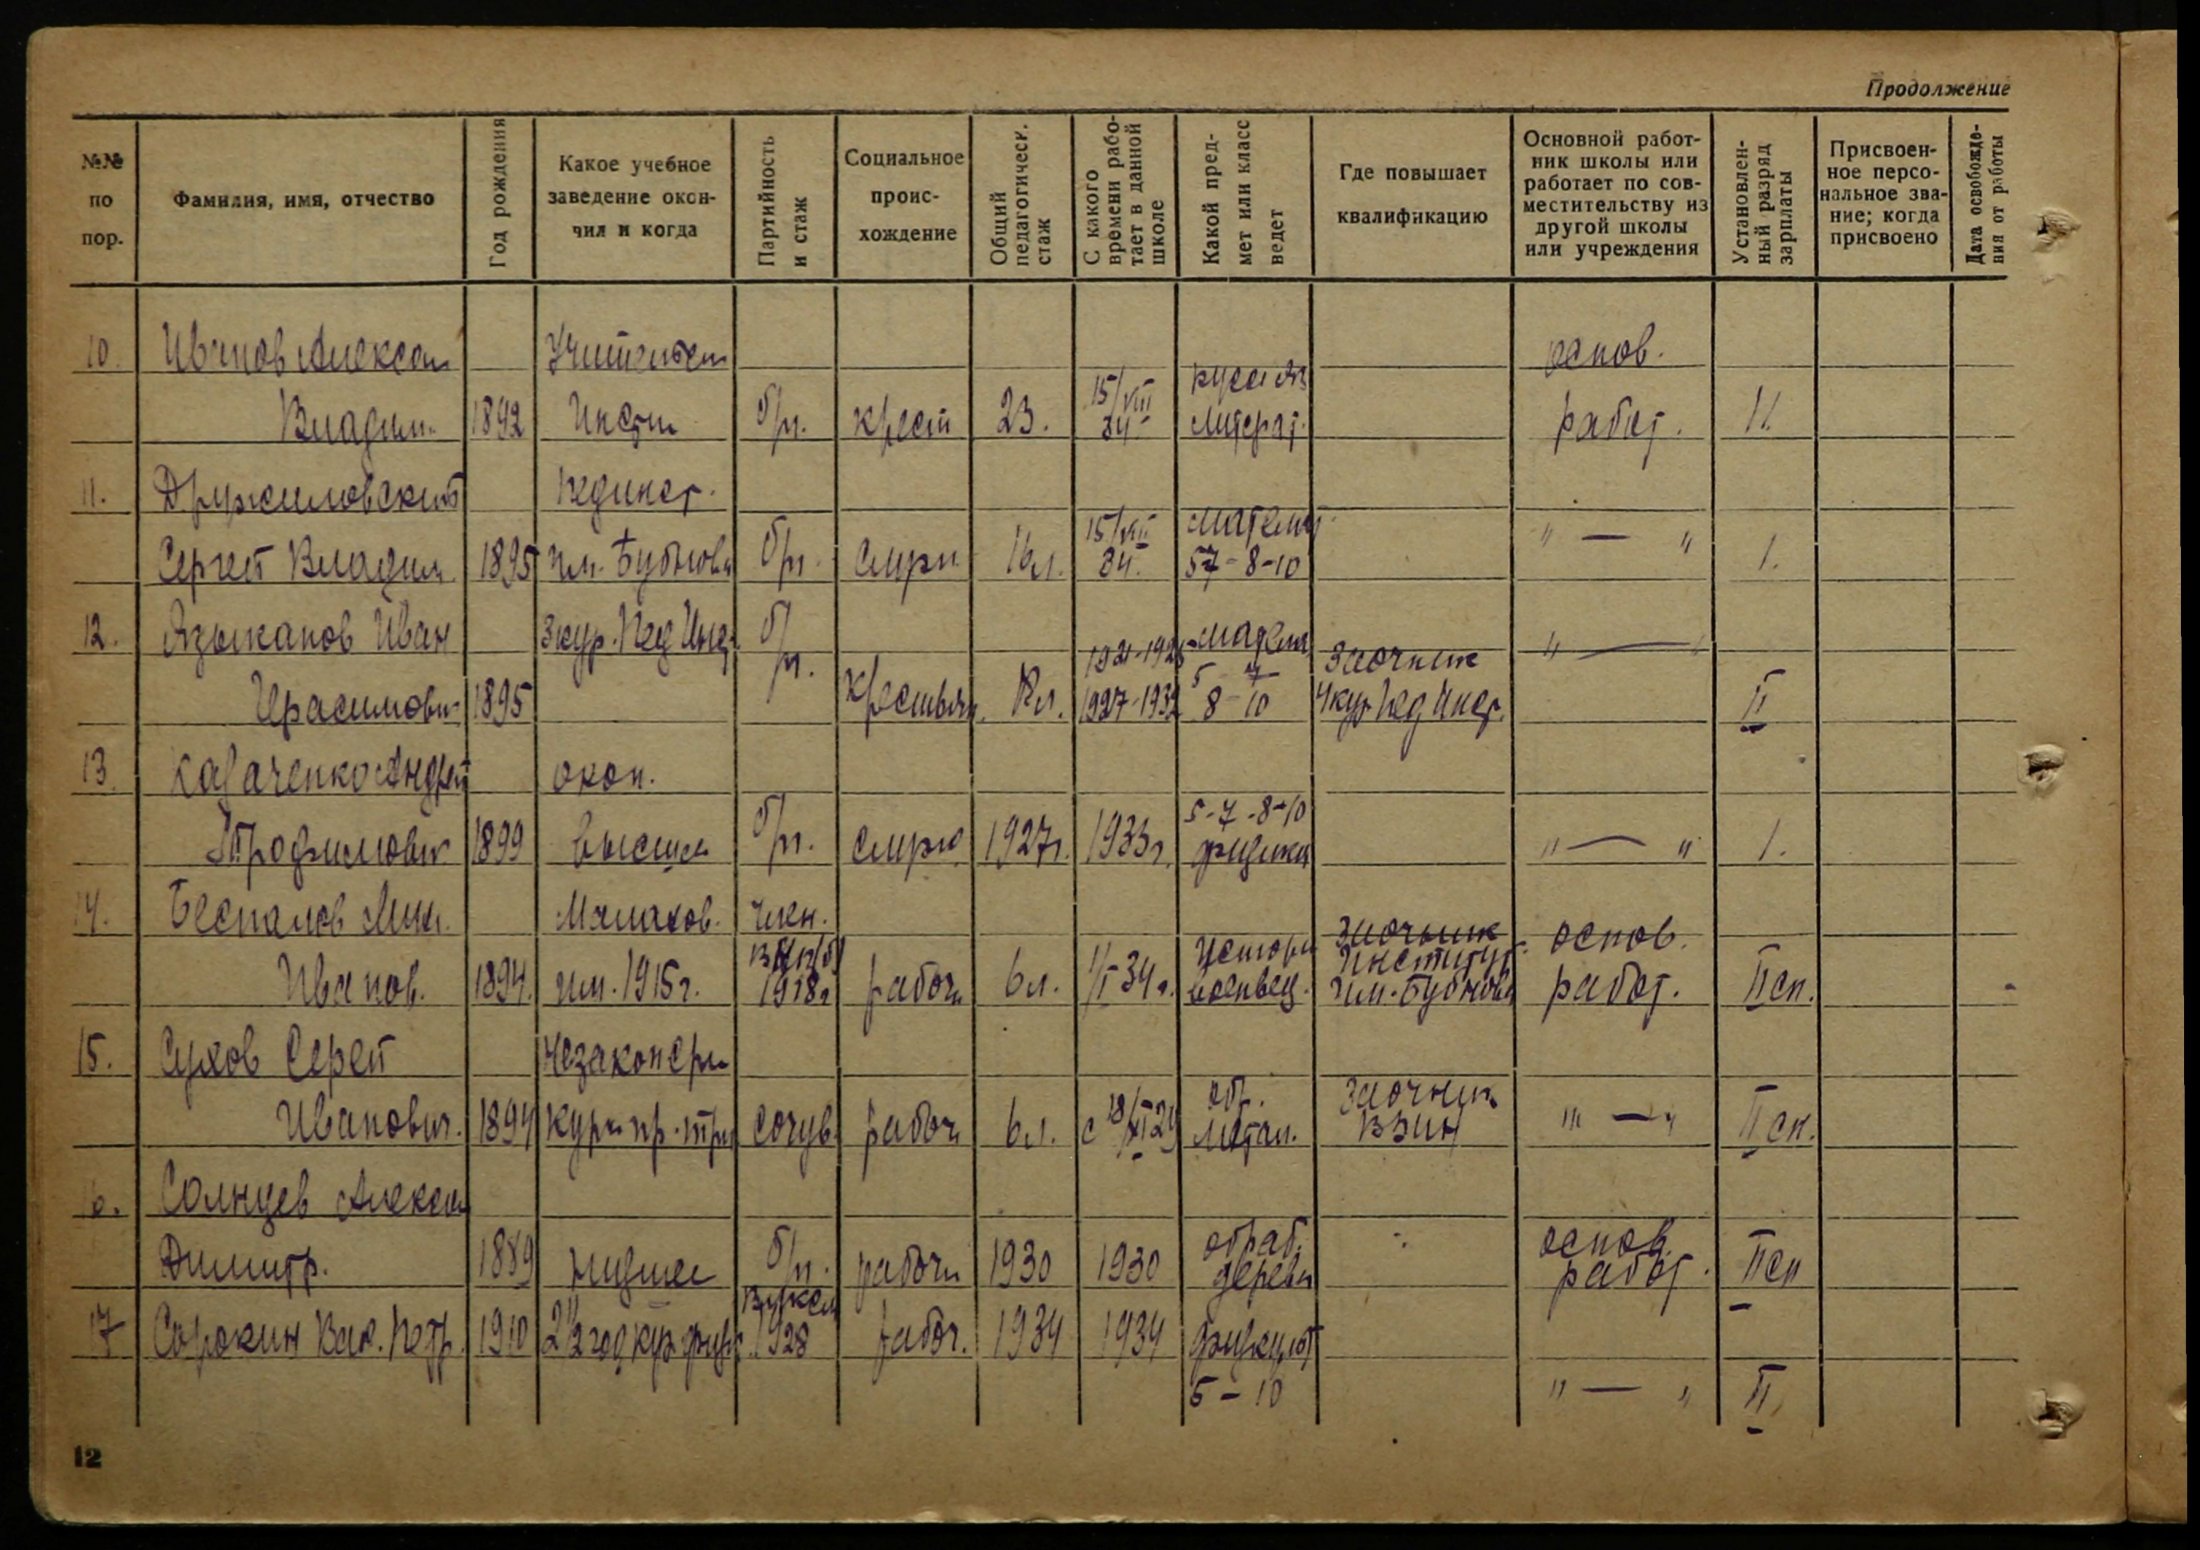 Продолжение
№№ по пор.
Фамилия, имя, отчество
Год рождения
Какое учебное заведение окон-
чил и когда
Партийность и стаж
Социальное проис-
хождение
Общий педагогическ. стаж
С какого времени рабо-
тает в данной школе
Какой пред-
мет или класс ведет
Где повышает квалификацию
Основной работ-
ник школы или
работает по сов-
местительству из
другой школы
или учреждения
Установлен-
ный разряд
зарплаты
Присвоен-
ное персо-
нальное зва-
ние; когда
присвоено
Дата освобожде-
ния от работы
10. Иванов Алексан Учительск основ.
Владим. 1892 Инсти б/п. крест 23. 15/VIII 34 русс яз литерат. работ. II.
11. Дружиловский Пединст.
Сергей Владим. 1895 им. Бубнова б/п. служ 16 л. 15/VIII 34. матема 57-8-10 " — " 1.
12. Языканов Иван 3 кур. Пед Инс. б/п. матем " — "
Герасимович 1895 крестьян. 1927-1932 5 7 8-10 Заочник 4 кур Пед Инст. II
13. Казаченко Андрей окон.
Трофимович 1899 высшее б/п. служ 1927 г. 1933 г. 5-7-8-10 физика " — " 1.
14. Беспалов Мих. член. Заочник основ.
Иванов. 1894. им. 1915 г. ВКП(б) 1918 г рабоч 6 л. 1/I 34 г. Истори Институт им. Бубнова работ. II сп.
15. Сухов Сергей Незакончен
Иванович. 1894 сочув. рабоч 6 л. обр. метал. Заочник " — " II сп.
16. Солнцев Алексан
Димитр. 1889 низшее б/п. рабоч 1930 1930 обраб. дерева основ. работ. II сп
17 Сорокин Вас. Петр. 1910 2 1/2 год кур физ 1928 рабоч. 1934 1934 физкульт
5-10 " — " II
12